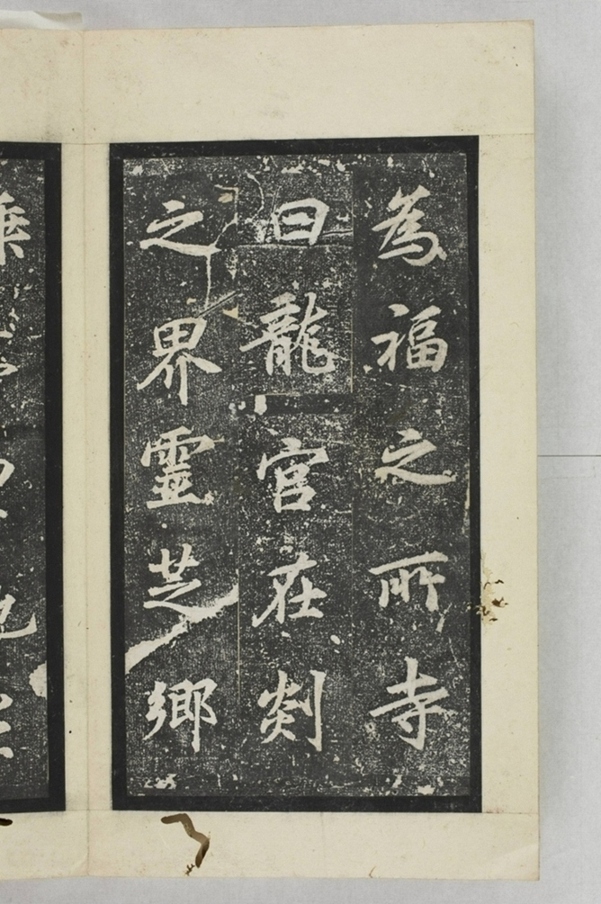 為福之所寺
曰龍宮在剡
之界靈芝鄉